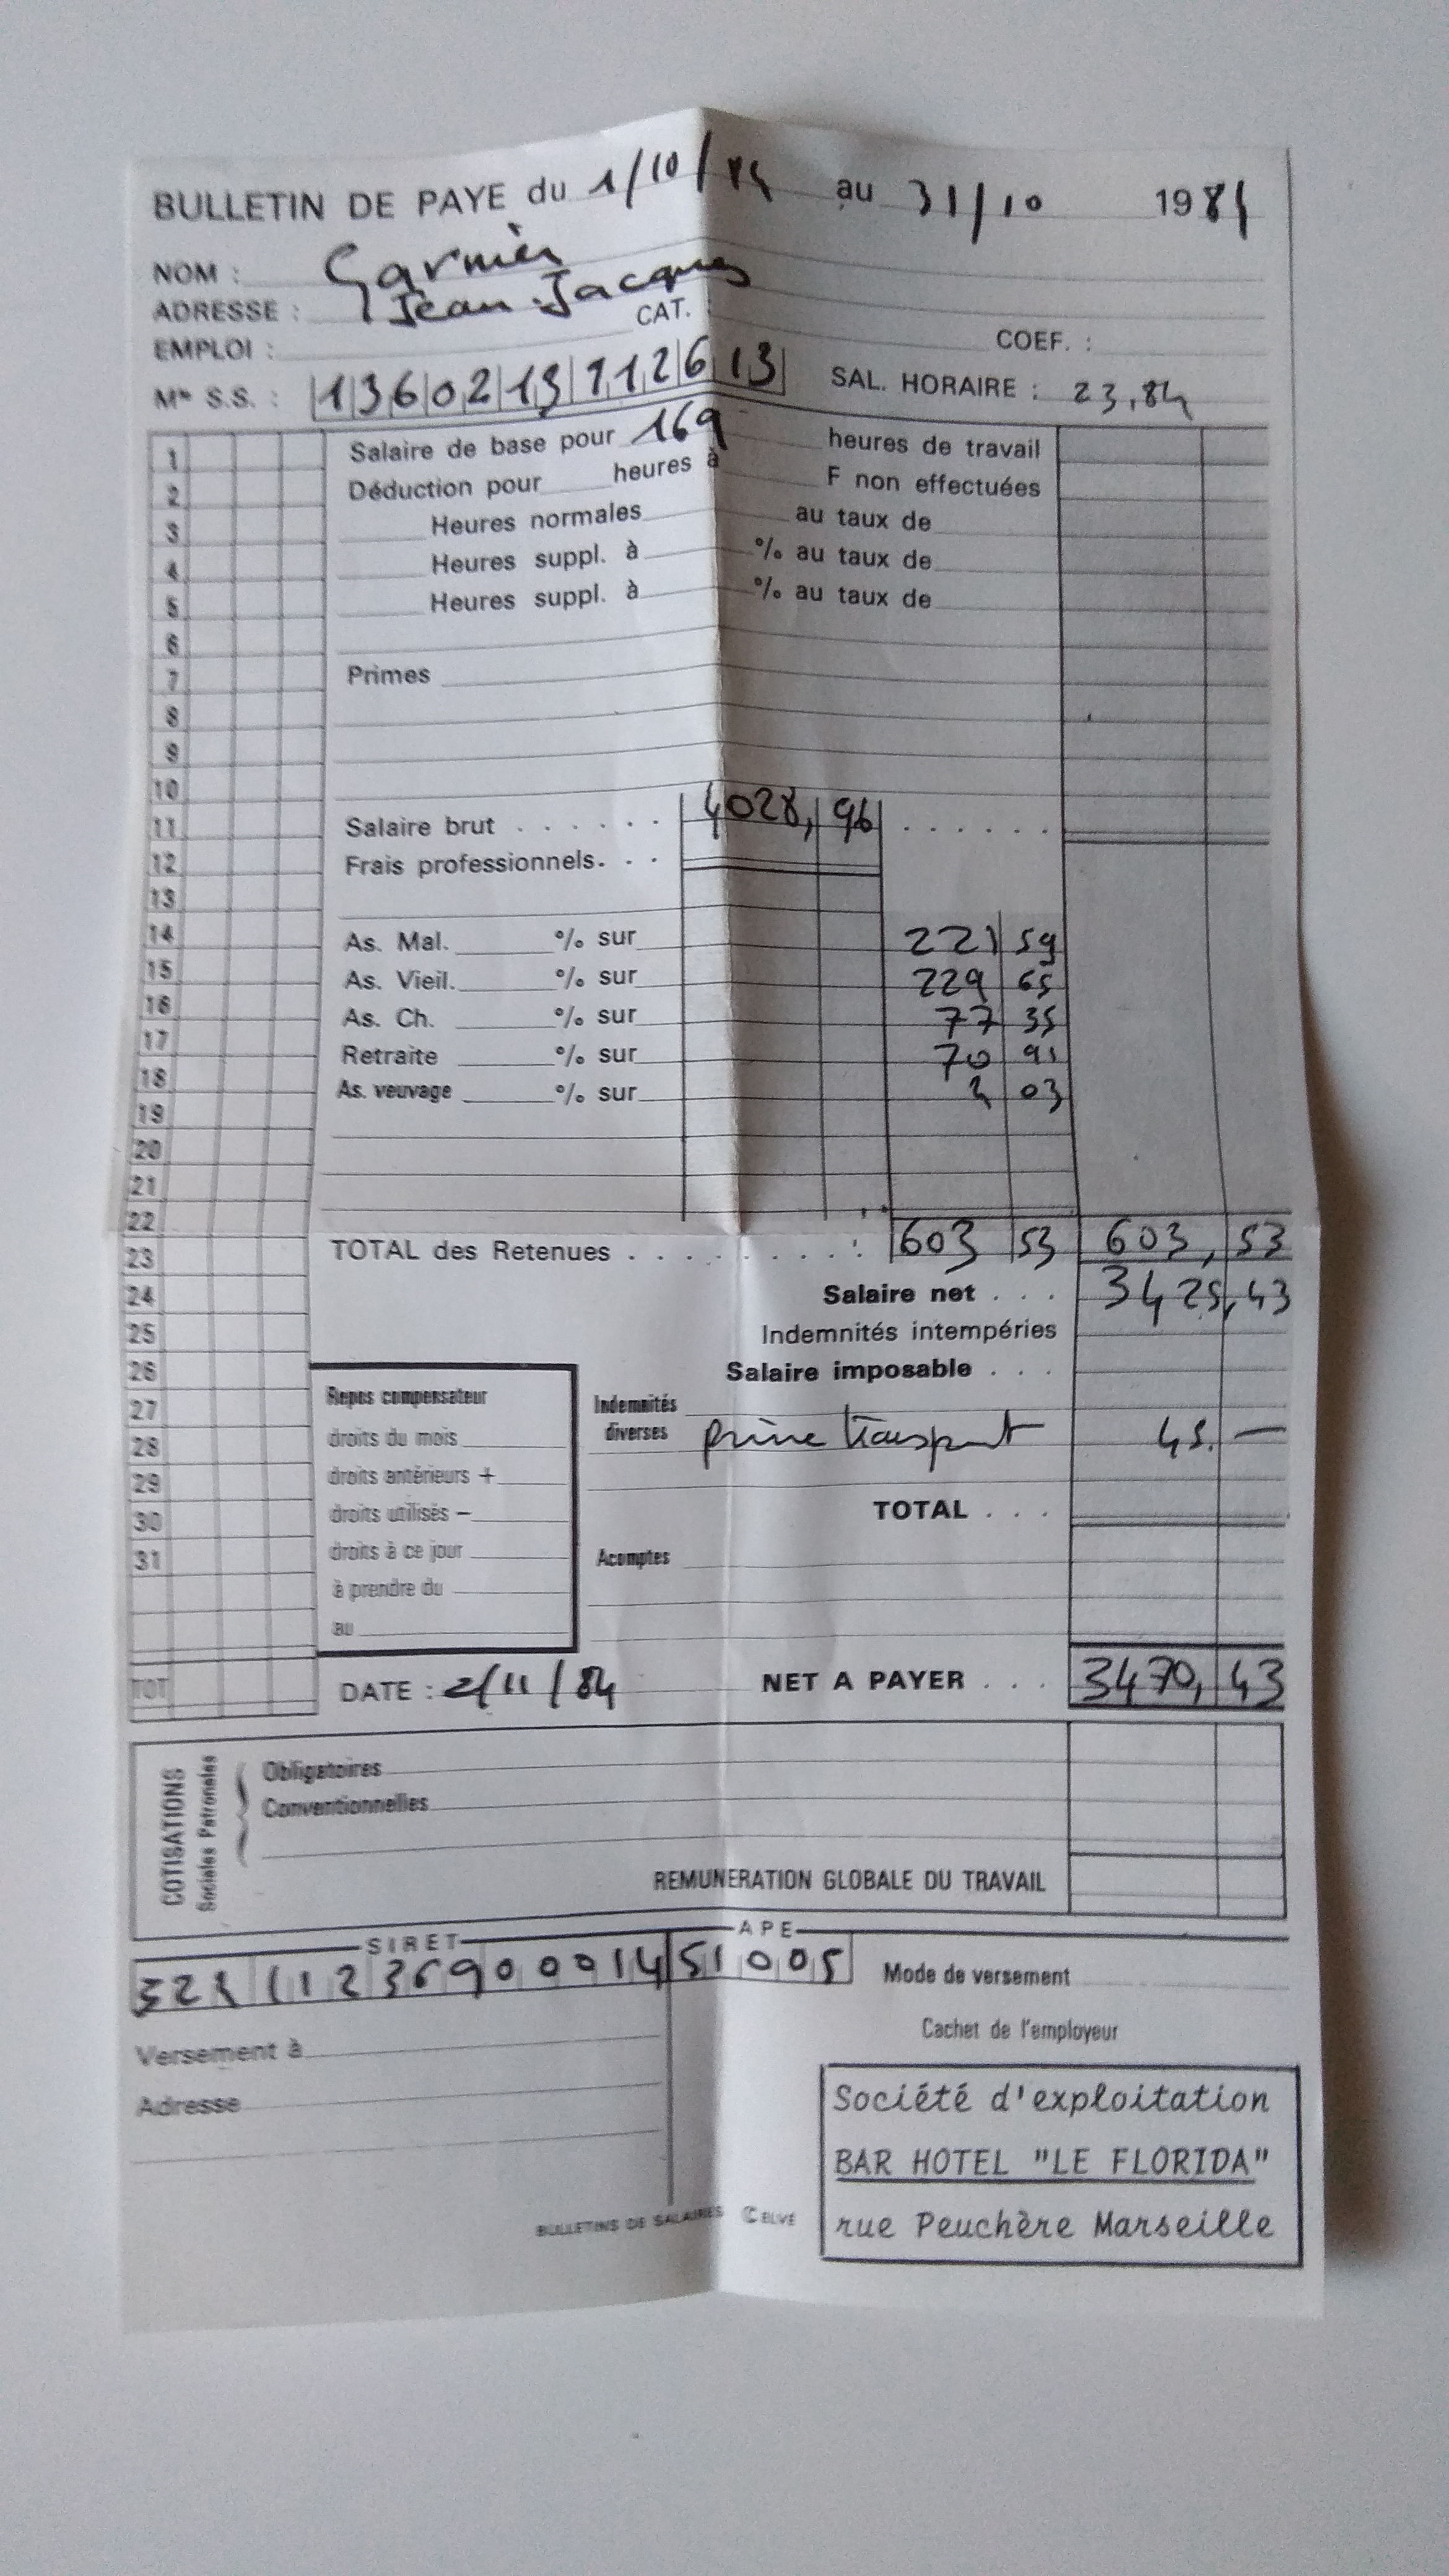 BULLETIN DE PAYE du 1/10/84 au 31/10 1984
NOM : Garnier
ADRESSE : Jean-Jacques
EMPLOI : CAT. : COEF. :
Mle S.S. : 1360213112613 SAL. HORAIRE : 23,84
1 Salaire de base pour 169 heures de travail
2 Déduction pour heures à F non effectuées
3 Heures normales au taux de
4 Heures suppl. à % au taux de
5 Heures suppl. à % au taux de
6
7 Primes
8
9
10
11 Salaire brut . . . . . . 4028,96 . . . . . .
12 Frais professionnels. . .
13
14 As. Mal. % sur 221 59
15 As. Vieil. % sur 229 65
16 As. Ch. % sur 77 35
17 Retraite % sur 70 91
18 As. veuvage % sur 4 03
19
20
21
22
23 TOTAL des Retenues . . . . . . . . : 603 53 603, 53
24 Salaire net . . . 3425,43
25 Indemnités intempéries
26 Salaire imposable . . .
27 Repos compensateur Indemnités
28 droits du mois diverses prime transport 45. —
29 droits antérieurs +
30 droits utilisés – TOTAL . . .
31 droits à ce jour Acomptes
à prendre du
au
TOT DATE : 2/11/84 NET A PAYER . . . 3470, 43
COTISATIONS
Sociales Patronales
Obligatoires
Conventionnelles
REMUNERATION GLOBALE DU TRAVAIL
SIRET APE
51005 Mode de versement
Cachet de l'employeur
Versement à
Adresse
Société d'exploitation
BAR HOTEL "LE FLORIDA"
rue Peuchère Marseille
BULLETINS DE SALAIRES CELVE